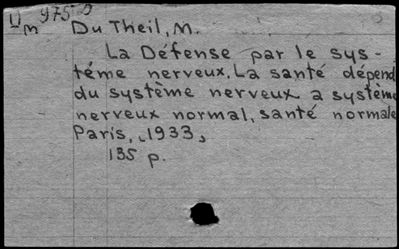 D 975-D
m Du Theil, M.
La Défense par le sys-
téme nerveux. La santé dépend
du système nerveux a système
nerveux normal, santé normale
Paris, 1933,
135 p.